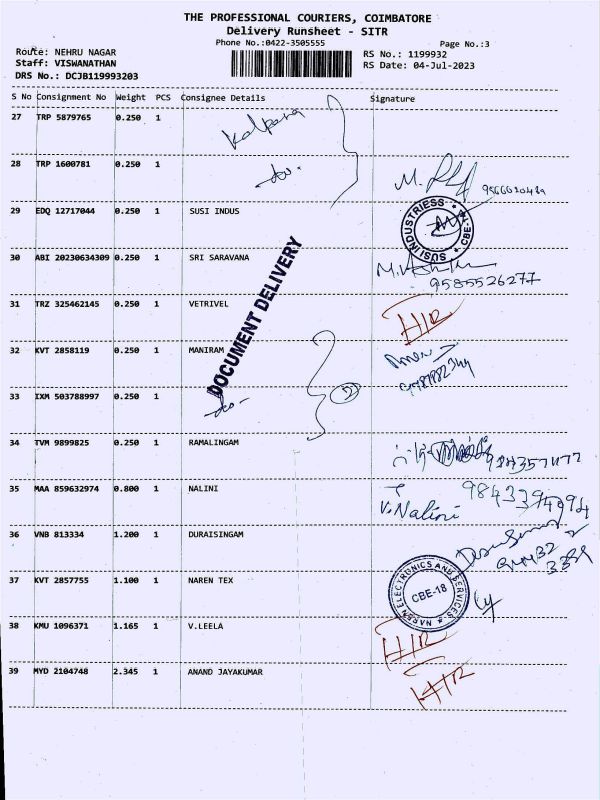 THE PROFESSIONAL COURIERS, COIMBATORE
Delivery Runsheet - SITR
Phone No.:0422-3505555
Page No.:3
Route: NEHRU NAGAR
RS No.: 1199932
Staff: VISWANATHAN
RS Date: 04-Jul-2023
DRS No.: DCJB119993203
S No Consignment No Weight PCS Consignee Details Signature
27 TRP 5879765 0.250 1 Kalpana
28 TRP 1600781 0.250 1 -do-
29 EDQ 12717044 0.250 1 SUSI INDUS
SUSI INDUSTRIESS CBE-
30 ABI 20230634309 0.250 1 SRI SARAVANA
9585526277
DOCUMENT DELIVERY
31 TRZ 325462145 0.250 1 VETRIVEL
32 KVT 2858119 0.250 1 MANIRAM
33 IXM 503788997 0.250 1 -do-
34 TVM 9899825 0.250 1 RAMALINGAM
35 MAA 859632974 0.800 1 NALINI V.Nalini
36 VNB 813334 1.200 1 DURAISINGAM
37 KVT 2857755 1.100 1 NAREN TEX
NAREN ELECTRONICS AND SERVICES CBE-18
38 KMU 1096371 1.165 1 V.LEELA
39 MYD 2104748 2.345 1 ANAND JAYAKUMAR